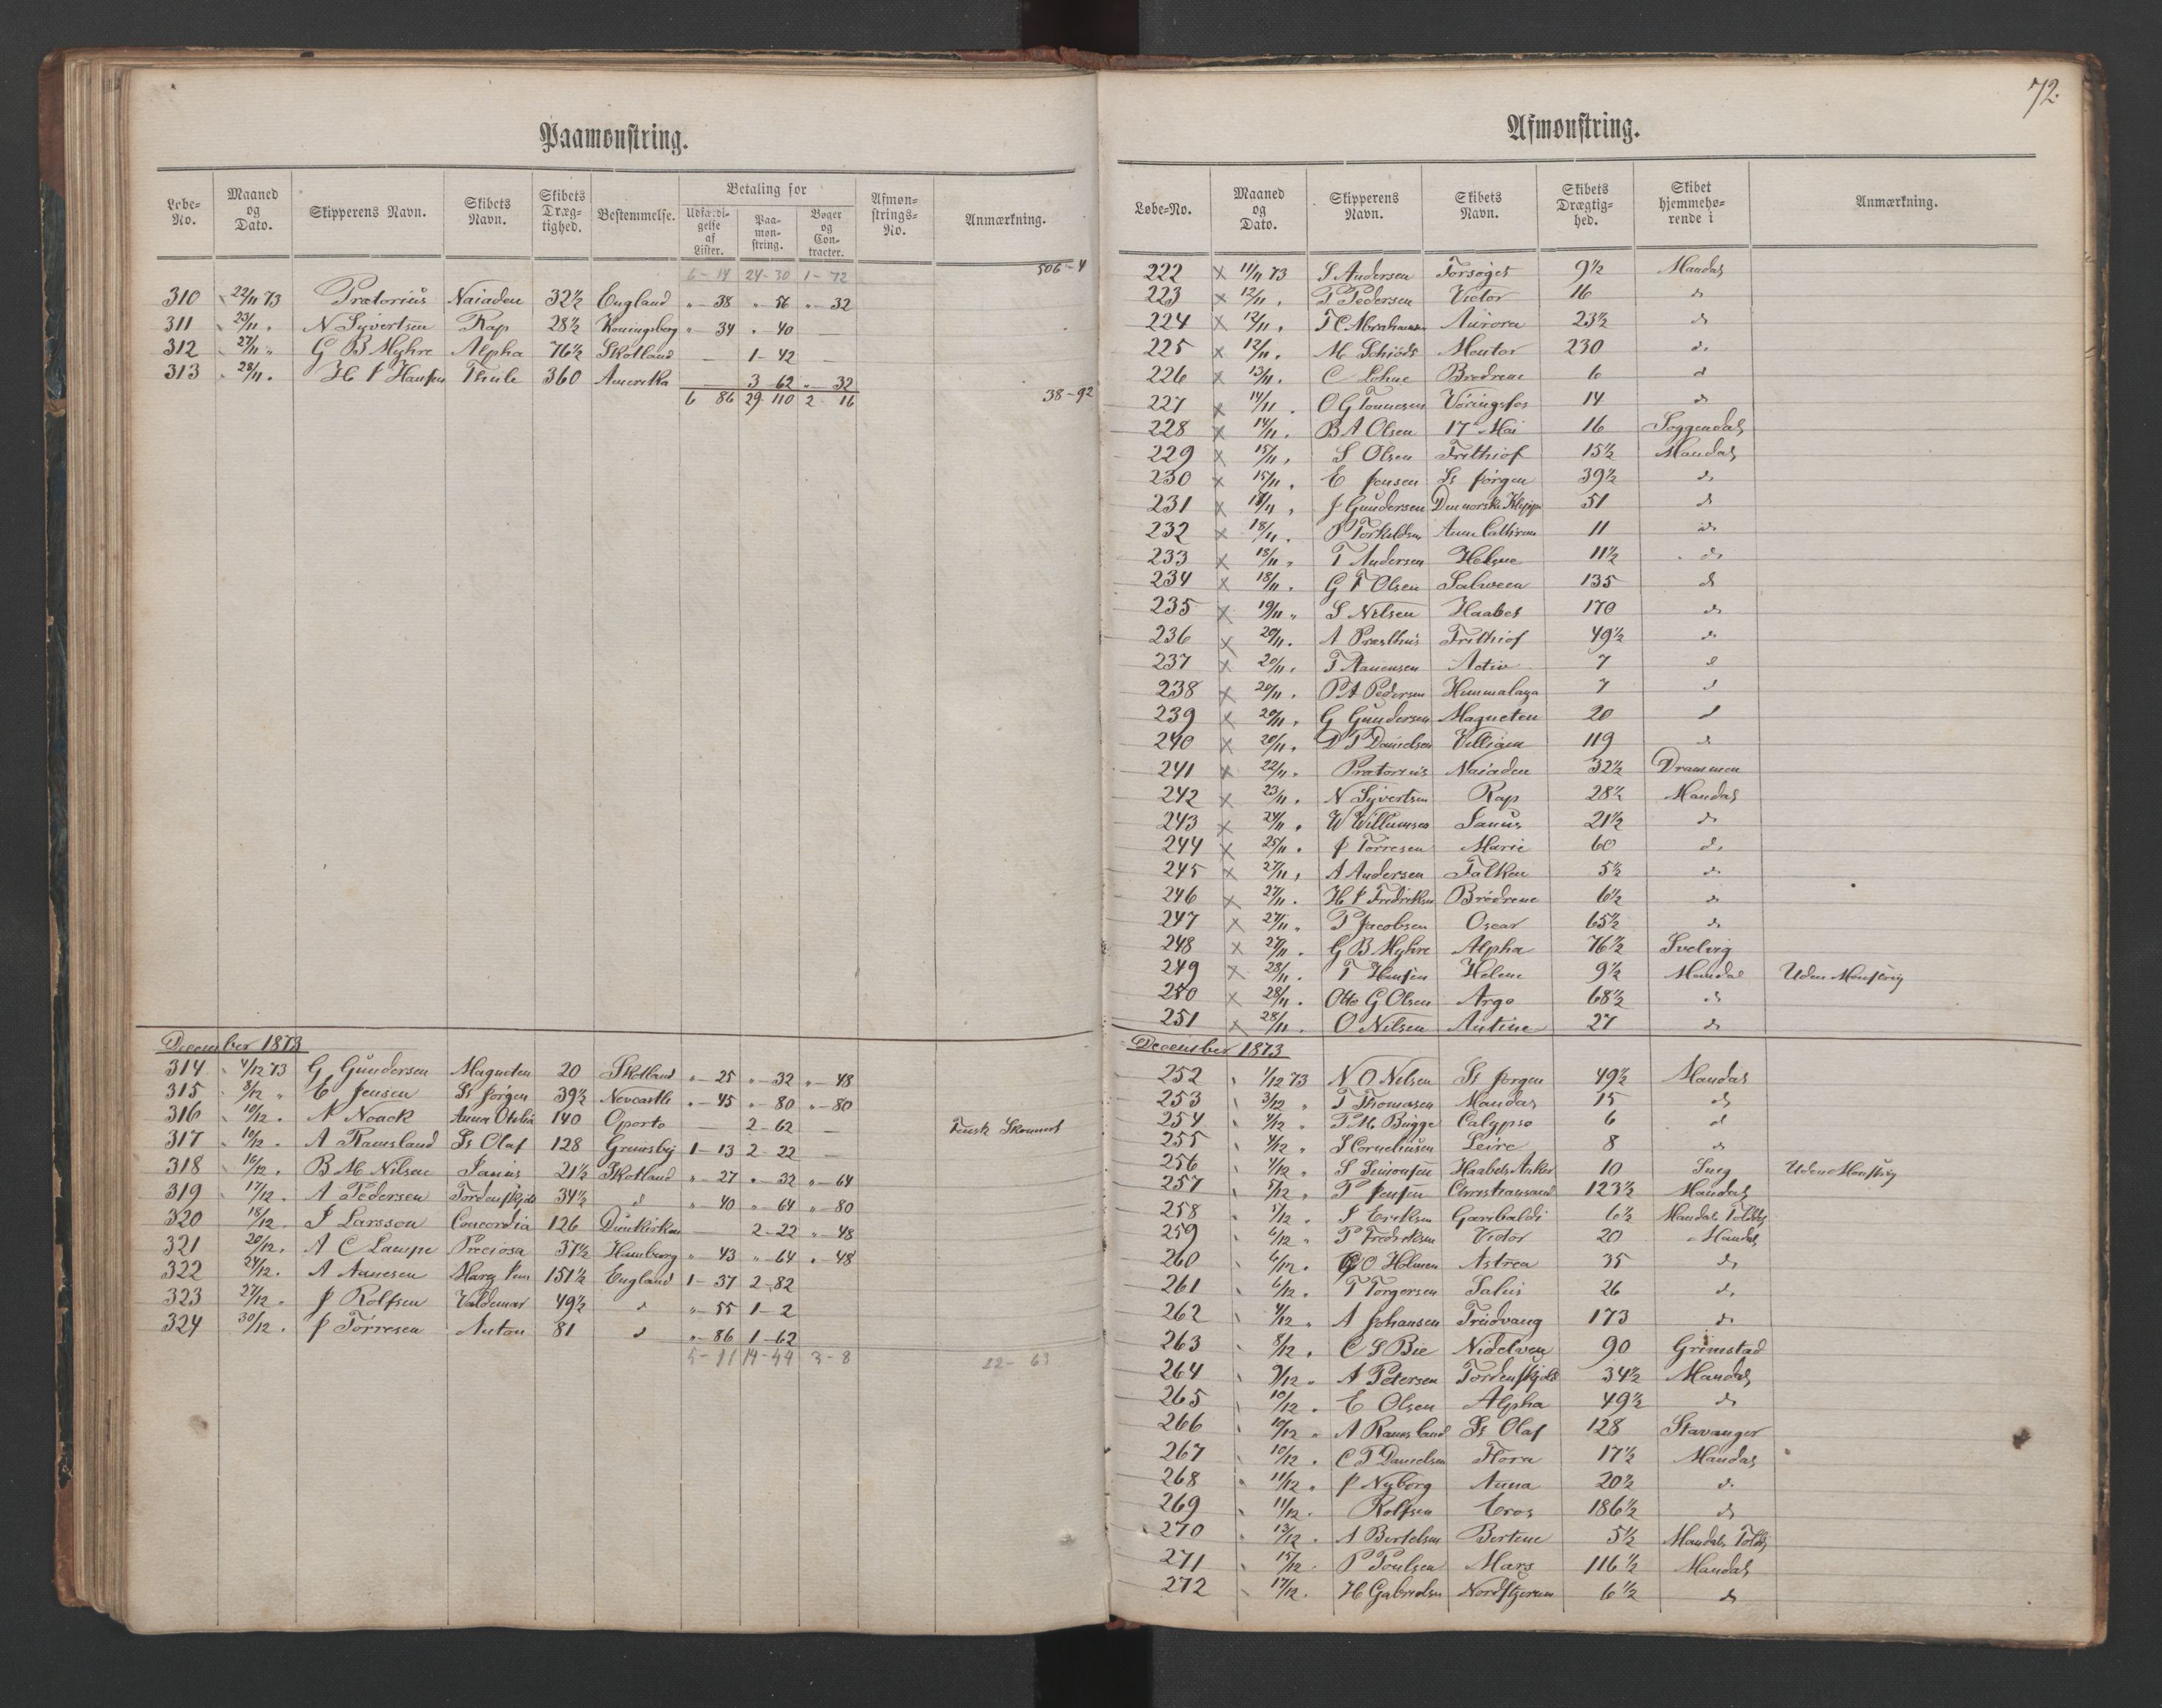 Paamønstring.
Løbe-No. Maaned og Dato. Skipperens Navn. Skibets Navn. Skibets Dræg-tighed. Bestemmelse. Betaling for Udfærdi-gelse af Lister. Paa-møn-string. Bøger og Con-tracter. Afmøn-strings-No. Anmærkning.
6-14 24-30 1-72 506-4
310 22/11 73 Prætorius Naiaden 32½ England " 38 " 56 " 32
311 23/11 " N Syvertsen Rap 28½ Koningsberg " 34 " 40 —
312 27/11 " G B Myhre Alpha 76½ Skotland — 1-42 —
313 28/11 " H J Hansen Thule 360 Amerika — 3 62 " 32
6 86 29 110 2 16 38-92
December 1873
314 4/12 73 G Gundersen Magneten 20 Skotland " 25 " 32 " 48
315 8/12 " E Jensen St Jörgen 39½ Newcastle " 45 " 80 " 80
316 10/12 " N Noack Anna Otilia 140 Oporto — 2-62 — Finsk Skonnert
317 10/12 " A Ramsland St Olaf 128 Grimsby 1-13 2-22 —
318 16/12 " B M Nilsen Janus 21½ Skotland " 27 " 32 " 64
319 17/12 " A Pedersen Tordenskjold 34½ do " 40 " 64 " 80
320 18/12 J Larsson Concordia 126 Dünkirken — 2-22 " 48
321 20/12 " A C Lampe Preciosa 37½ Hamburg " 43 " 64 " 48
322 24/12 " A Aanesen Marg 151½ England 1-37 2-82
323 27/12 " J Rolfsen Valdemar 49½ do " 55 1-2
324 30/12 " J Törresen Anton 81 do " 86 1-62
5-11 14-44 3-8 22-63
72.
Afmønstring.
Løbe-No. Maaned og Dato. Skipperens Navn. Skibets Navn. Skibets Drægtig-hed. Skibet hjemmehø-rende i Anmærkning.
222 x 11/11 73 S Andersen Forsöget 9½ Mandal
223 x 12/11 " P Pedersen Victor 16 do
224 x 12/11 " T C Abrahamsen Aurora 23½ do
225 x 12/11 " M Schiöds Mentor 230 do
226 x 13/11 " C Lohne Brödrene 6 do
227 x 14/11 " O G Tönnesen Vöringsfos 14 do
228 x 14/11 " B A Olsen 17 Mai 16 Soggendal
229 x 15/11 " S Olsen Frithiof 15½ Mandal
230 x 15/11 " E Jensen St Jörgen 39½ do
231 x 18/11 " J Gundersen Den norske Klippe 51 do
232 x 18/11 " P Torkildsen Anne Cathrine 11 do
233 x 18/11 " T Andersen Helene 11½ do
234 x 18/11 " G F Olsen Salween 135 do
235 x 19/11 " S Nilsen Haabet 170 do
236 x 20/11 " A Præsthus Frithiof 49½ do
237 x 20/11 " T Aanensen Activ 7 do
238 x 20/11 " P A Pedersen Himmalaya 7 do
239 x 20/11 " G Gundersen Magneten 20 do
240 x 20/11 " D T Danielsen William 119 do
241 x 22/11 " Prætorius Naiaden 32½ Drammen
242 x 23/11 " N Syvertsen Rap 28½ Mandal
243 x 24/11 " W Willumsen Janus 21½ do
244 x 25/11 " J Törresen Marie 60 do
245 x 27/11 " A Andersen Falken 5½ do
246 x 27/11 " H J Fredriksen Brödrene 6½ do
247 x 27/11 " P Jacobsen Oscar 65½ do
248 x 27/11 " G B Myhre Alpha 76½ Svelvig
249 x 28/11 " T Hansen Helene 9½ Mandal Uden Mønstring
250 x 28/11 " Otto G Olsen Argo 68½ do
251 x 28/11 " O Nilsen Antine 27 do
December 1873
252 1/12 73 N O Nilsen St Jörgen 49½ Mandal
253 3/12 " T Thomasen Mandal 15 do
254 4/12 " P M Bugge Calypso 6 do
255 4/12 " S Corneliusen Leire 8 do
256 4/12 " S Simonsen Haabets Anker 10 Uden Mønstring
257 5/12 " P Jensen Christiansand 123½ Mandal
258 5/12 " J Eriksen Garibaldi 6½ Mandals Toldd
259 6/12 " P Fredriksen Victor 20 Mandal
260 6/12 " O Holmen Astrea 35 do
261 6/12 " T Torgersen Salus 26 do
262 4/12 " A Johansen Trudvang 173 do
263 8/12 " C S Bie Nidelven 90 Grimstad
264 9/12 " A Petersen Tordenskjold 34½ Mandal
265 10/12 " E Olsen Alpha 49½ do
266 10/12 " A Ramsland St Olaf 128 Stavanger
267 10/12 " C T Danielsen Flora 17½ Mandal
268 11/12 " J Nyborg Anna 20½ do
269 11/12 " Rolfsen Eros 186½ do
270 13/12 " A Bertelsen Bertine 5½ Mandals Toldd
271 15/12 " P Poulsen Mars 116½ Mandal
272 17/12 " H Gabrielsen Nordstjernen 6½ do